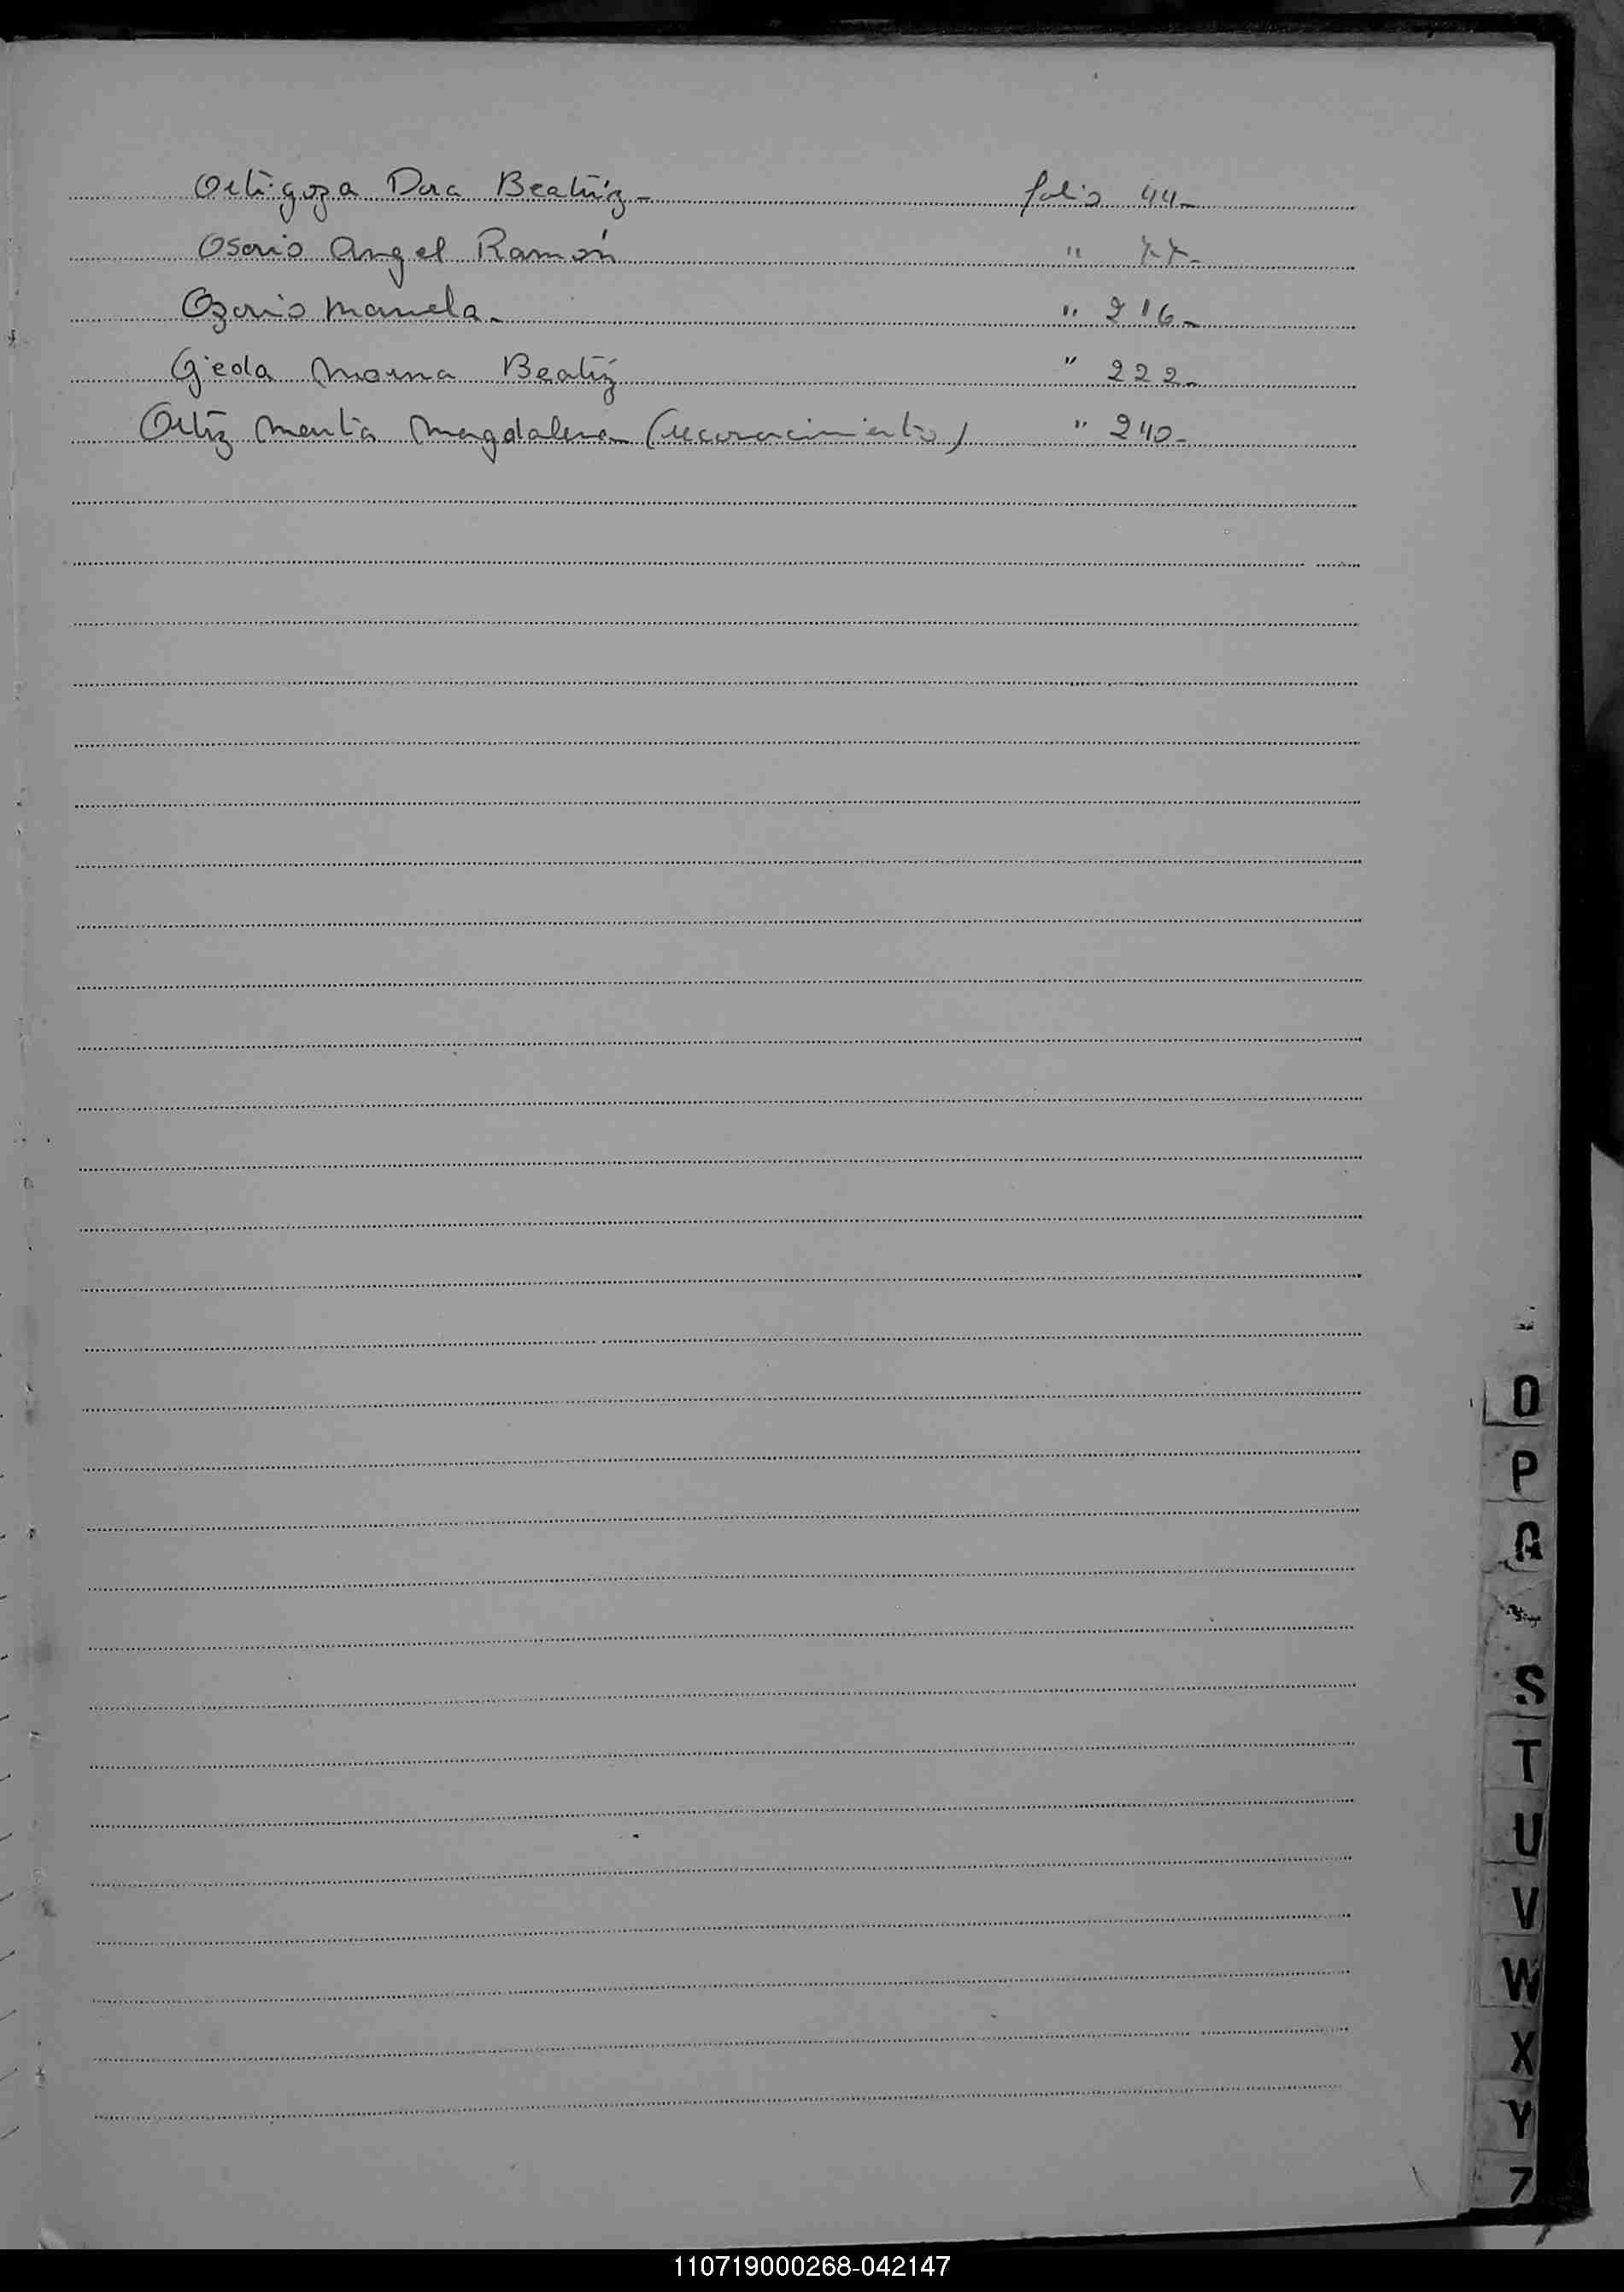 Ortigoza Dora Beatríz - folio 44-
Osorio Angel Ramón " 77-
Ozorio Manuela - " 216-
Ojeda Norma Beatríz " 222-
Ortiz Magdalena (reconocimiento) " 240-
O
P
Q
S
T
U
V
W
X
Y
Z
110719000268-042147